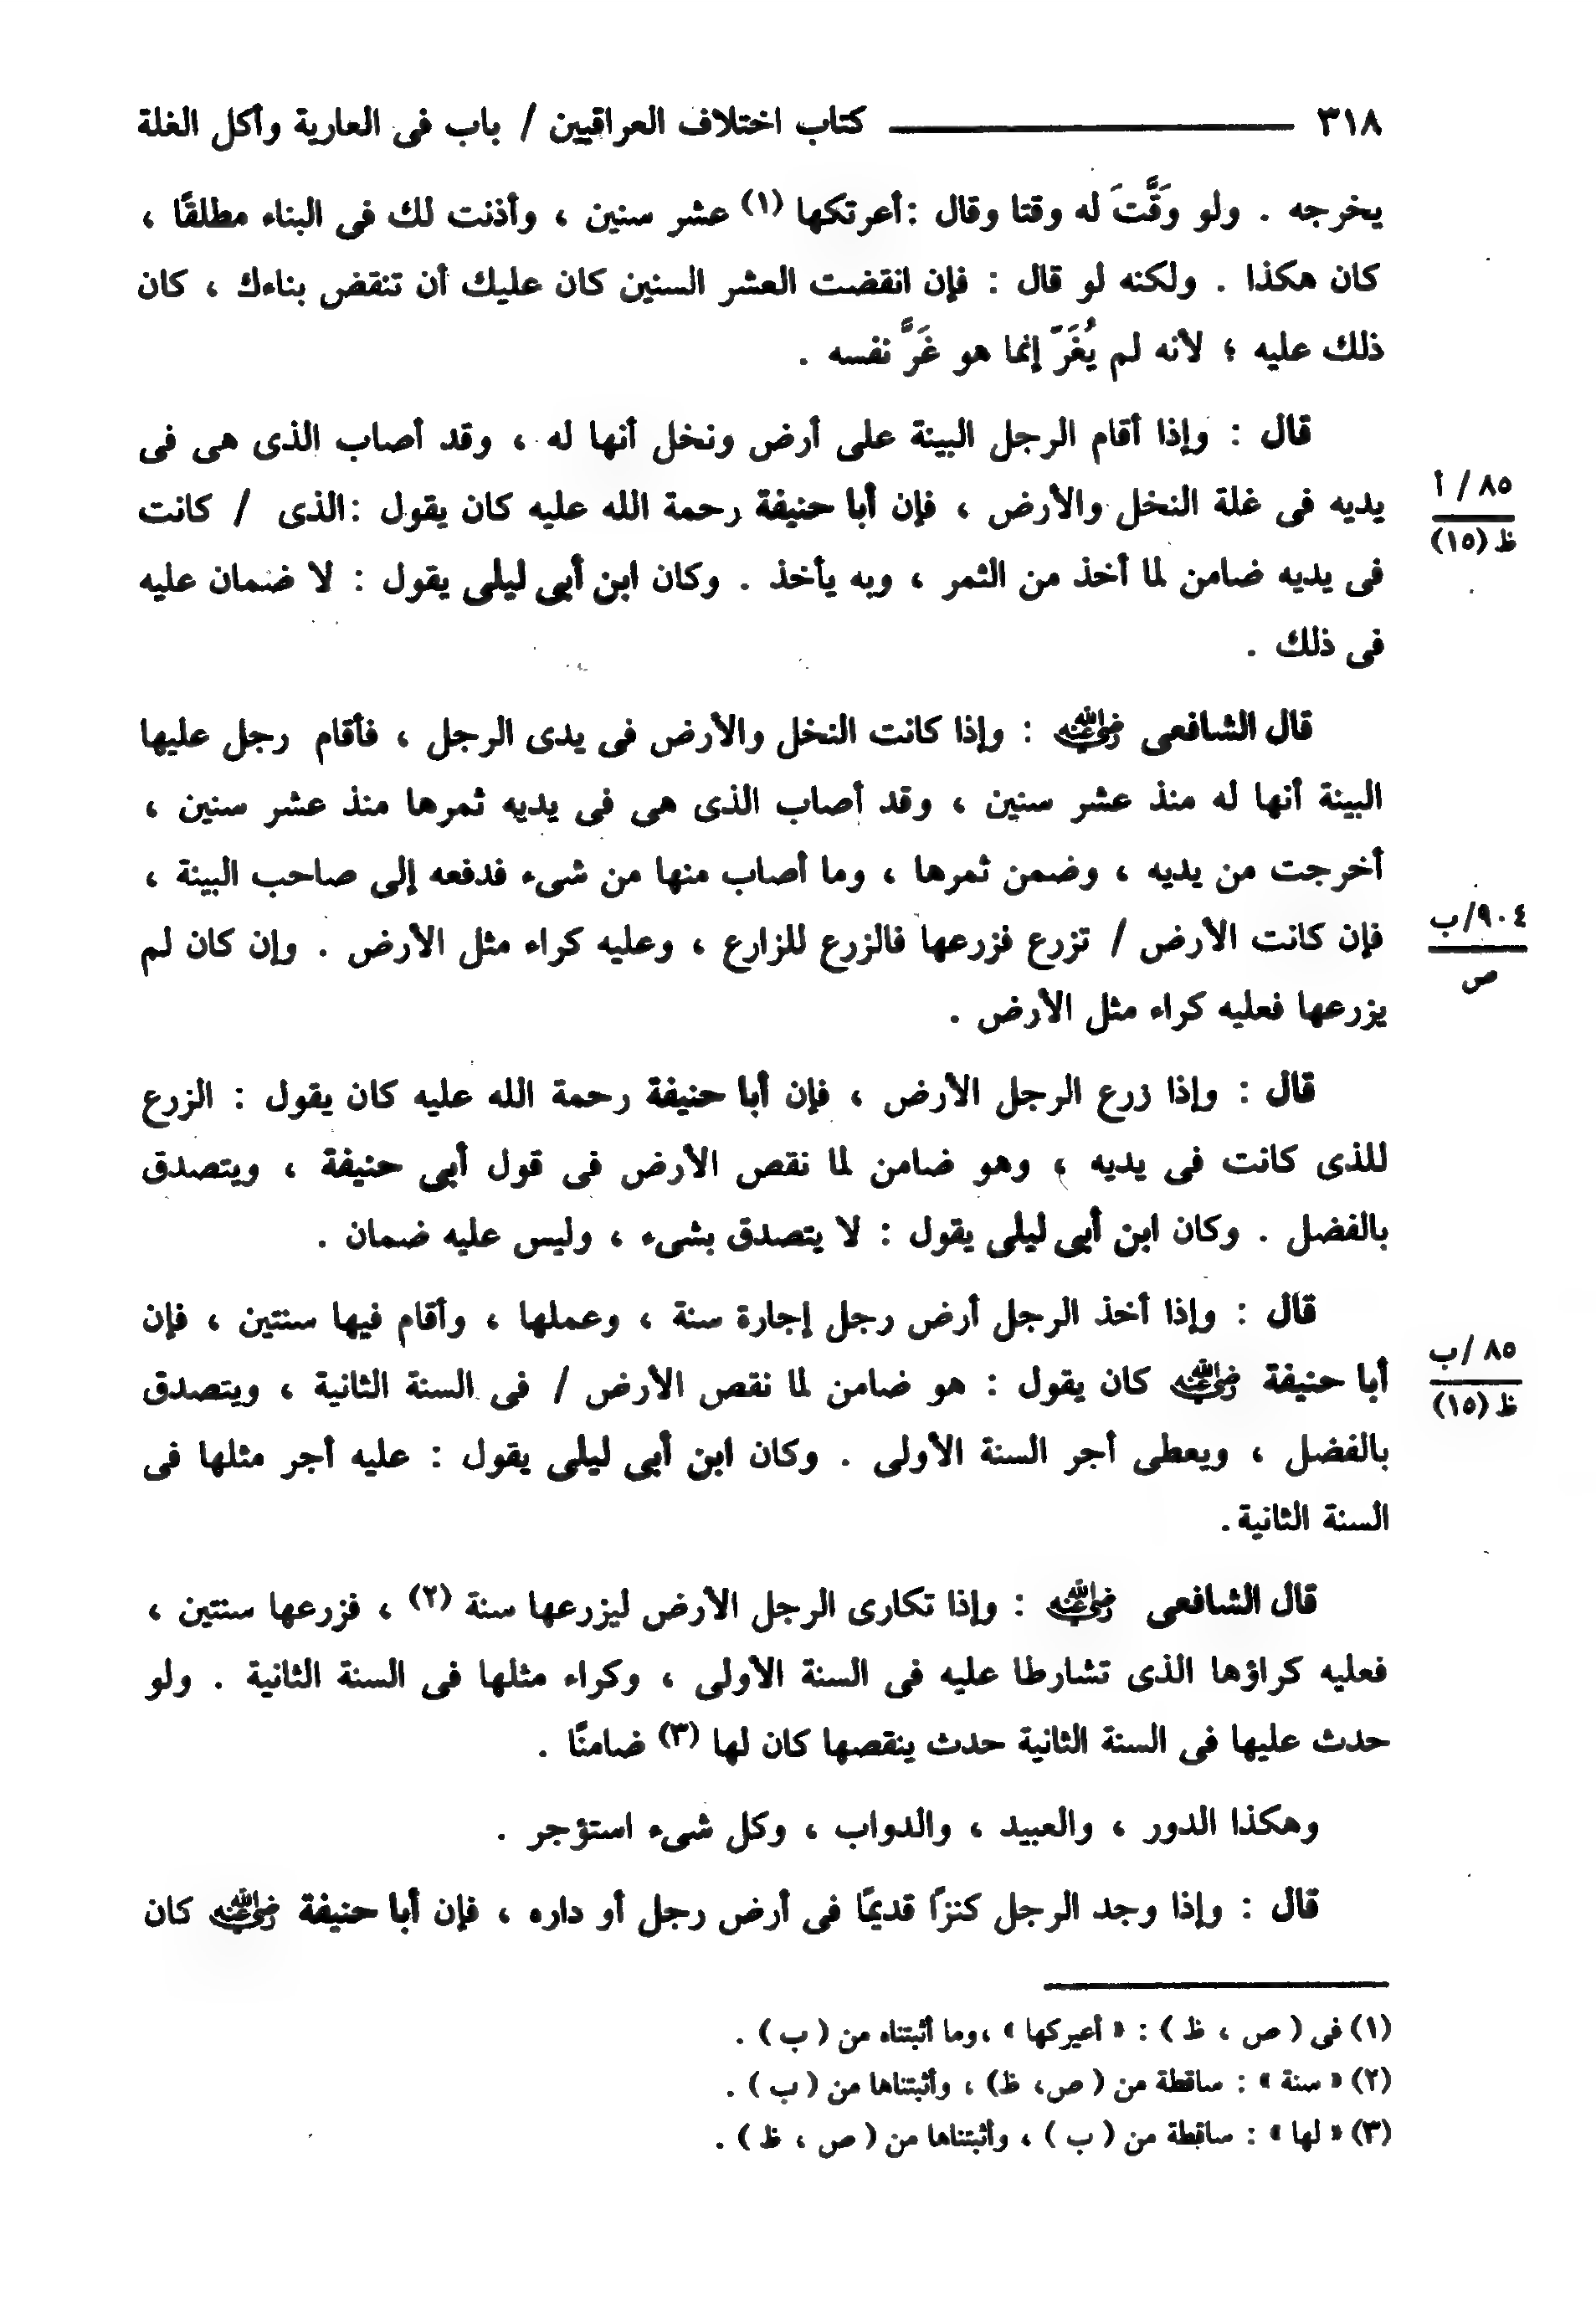 ٣١٨ ــــــــــــــــ كتاب اختلاف العراقيين / باب فى العارية وأكل الغلة
يخرجه . ولو وَقَّتَ له وقتا وقال :أعرتكها (١) عشر سنين ، وأذنت لك فى البناء مطلقًا ،
كان هكذا . ولكنه لو قال : فإن انقضت العشر السنين كان عليك أن تنقض بناءك ، كان
ذلك عليه ؛ لأنه لم يُغَرّ إنما هو غَرَّ نفسه .
قال : وإذا أقام الرجل البينة على أرض ونخل أنها له ، وقد أصاب الذى هى فى
٨٥ / أ
يديه فى غلة النخل والأرض ، فإن أبا حنيفة رحمة الله عليه كان يقول :الذى / كانت
ظ (١٥)
فى يديه ضامن لما أخذ من الثمر ، وبه يأخذ . وكان ابن أبى ليلى يقول : لا ضمان عليه
فى ذلك .
قال الشافعى رضي الله عنه : وإذا كانت النخل والأرض فى يدى الرجل ، فأقام رجل عليها
البينة أنها له منذ عشر سنين ، وقد أصاب الذى هى فى يديه ثمرها منذ عشر سنين ،
أخرجت من يديه ، وضمن ثمرها ، وما أصاب منها من شىء فدفعه إلى صاحب البينة ،
٩٠٤/ب
فإن كانت الأرض / تزرع فزرعها فالزرع للزارع ، وعليه كراء مثل الأرض . وإن كان لم
ص
يزرعها فعليه كراء مثل الأرض .
قال : وإذا زرع الرجل الأرض ، فإن أبا حنيفة رحمة الله عليه كان يقول : الزرع
للذى كانت فى يديه ، وهو ضامن لما نقص الأرض فى قول أبى حنيفة ، ويتصدق
بالفضل . وكان ابن أبى ليلى يقول : لا يتصدق بشىء ، وليس عليه ضمان .
قال : وإذا أخذ الرجل أرض رجل إجارة سنة ، وعملها ، وأقام فيها سنتين ، فإن
٨٥ /ب
أبا حنيفة رضي الله عنه كان يقول : هو ضامن لما نقص الأرض / فى السنة الثانية ، ويتصدق
ظ (١٥)
بالفضل ، ويعطى أجر السنة الأولى . وكان ابن أبى ليلى يقول : عليه أجر مثلها فى
السنة الثانية .
قال الشافعى رضي الله عنه : وإذا تكارى الرجل الأرض ليزرعها سنة (٢) ، فزرعها سنتين ،
فعليه كراؤها الذى تشارطا عليه فى السنة الأولى ، وكراء مثلها فى السنة الثانية . ولو
حدث عليها فى السنة الثانية حدث ينقصها كان لها (٣) ضامنًا .
وهكذا الدور ، والعبيد ، والدواب ، وكل شىء استؤجر .
قال : وإذا وجد الرجل كنزًا قديمًا فى أرض رجل أو داره ، فإن أبا حنيفة رضي الله عنه كان
(١) فى ( ص ، ظ ) : « أعيركها » ،وما أثبتناه من ( ب ) .
(٢) « سنة » : ساقطة من ( ص، ظ) ، وأثبتناها من ( ب ) .
(٣) « لها » : ساقطة من ( ب ) ، وأثبتناها من ( ص ، ظ ) .